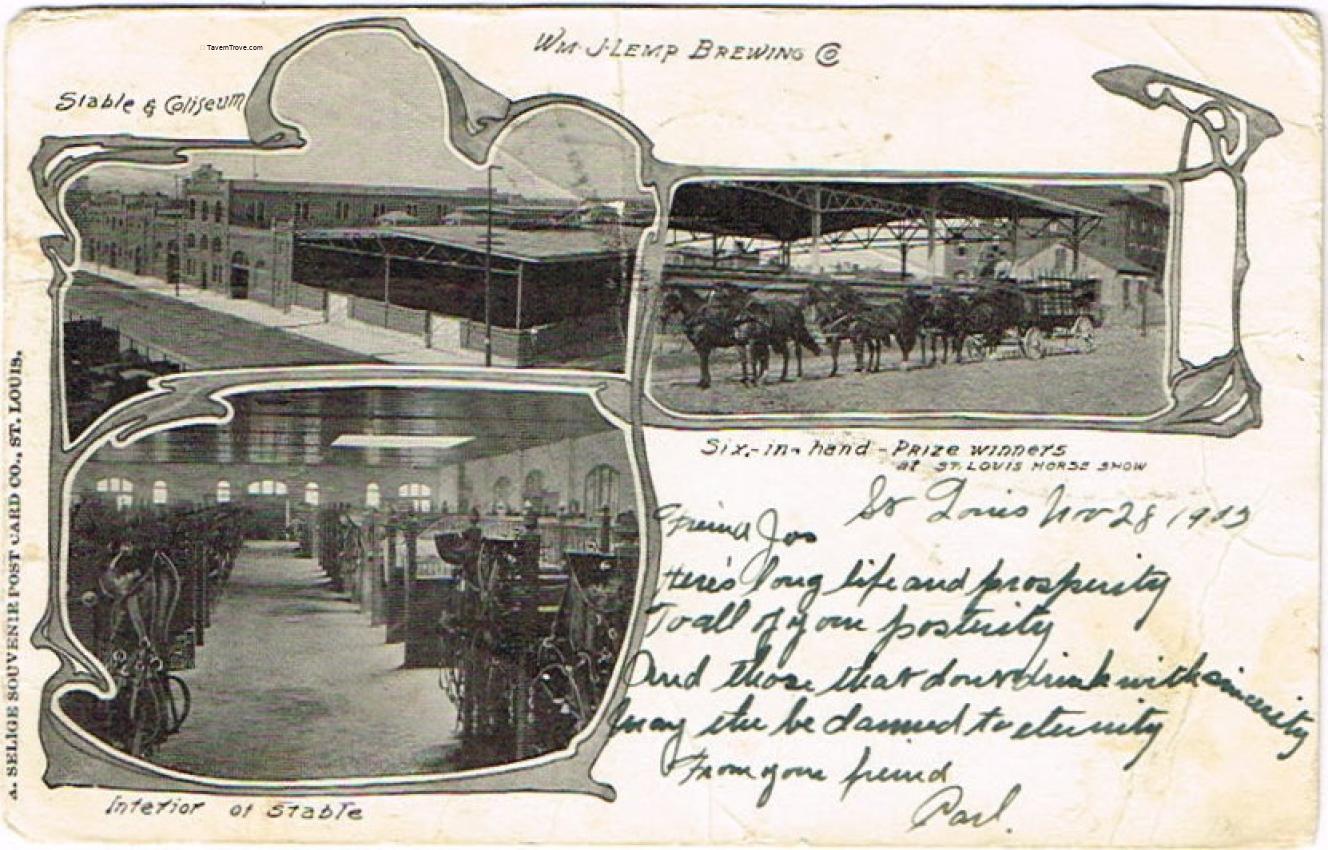 TavernTrove.com
Wm. J. Lemp Brewing Co
Stable & Coliseum
Six-in-hand - Prize winners
at St. Louis Horse Show
St Louis Nov 28 1903
Freind Jos
Here's long life and prosperity
To all of your posterity
And those that don't drink with sincerity
may the be damned to eternity
From your freind
Interior of Stable
A. SELIGE SOUVENIR POST CARD CO., ST. LOUIS.